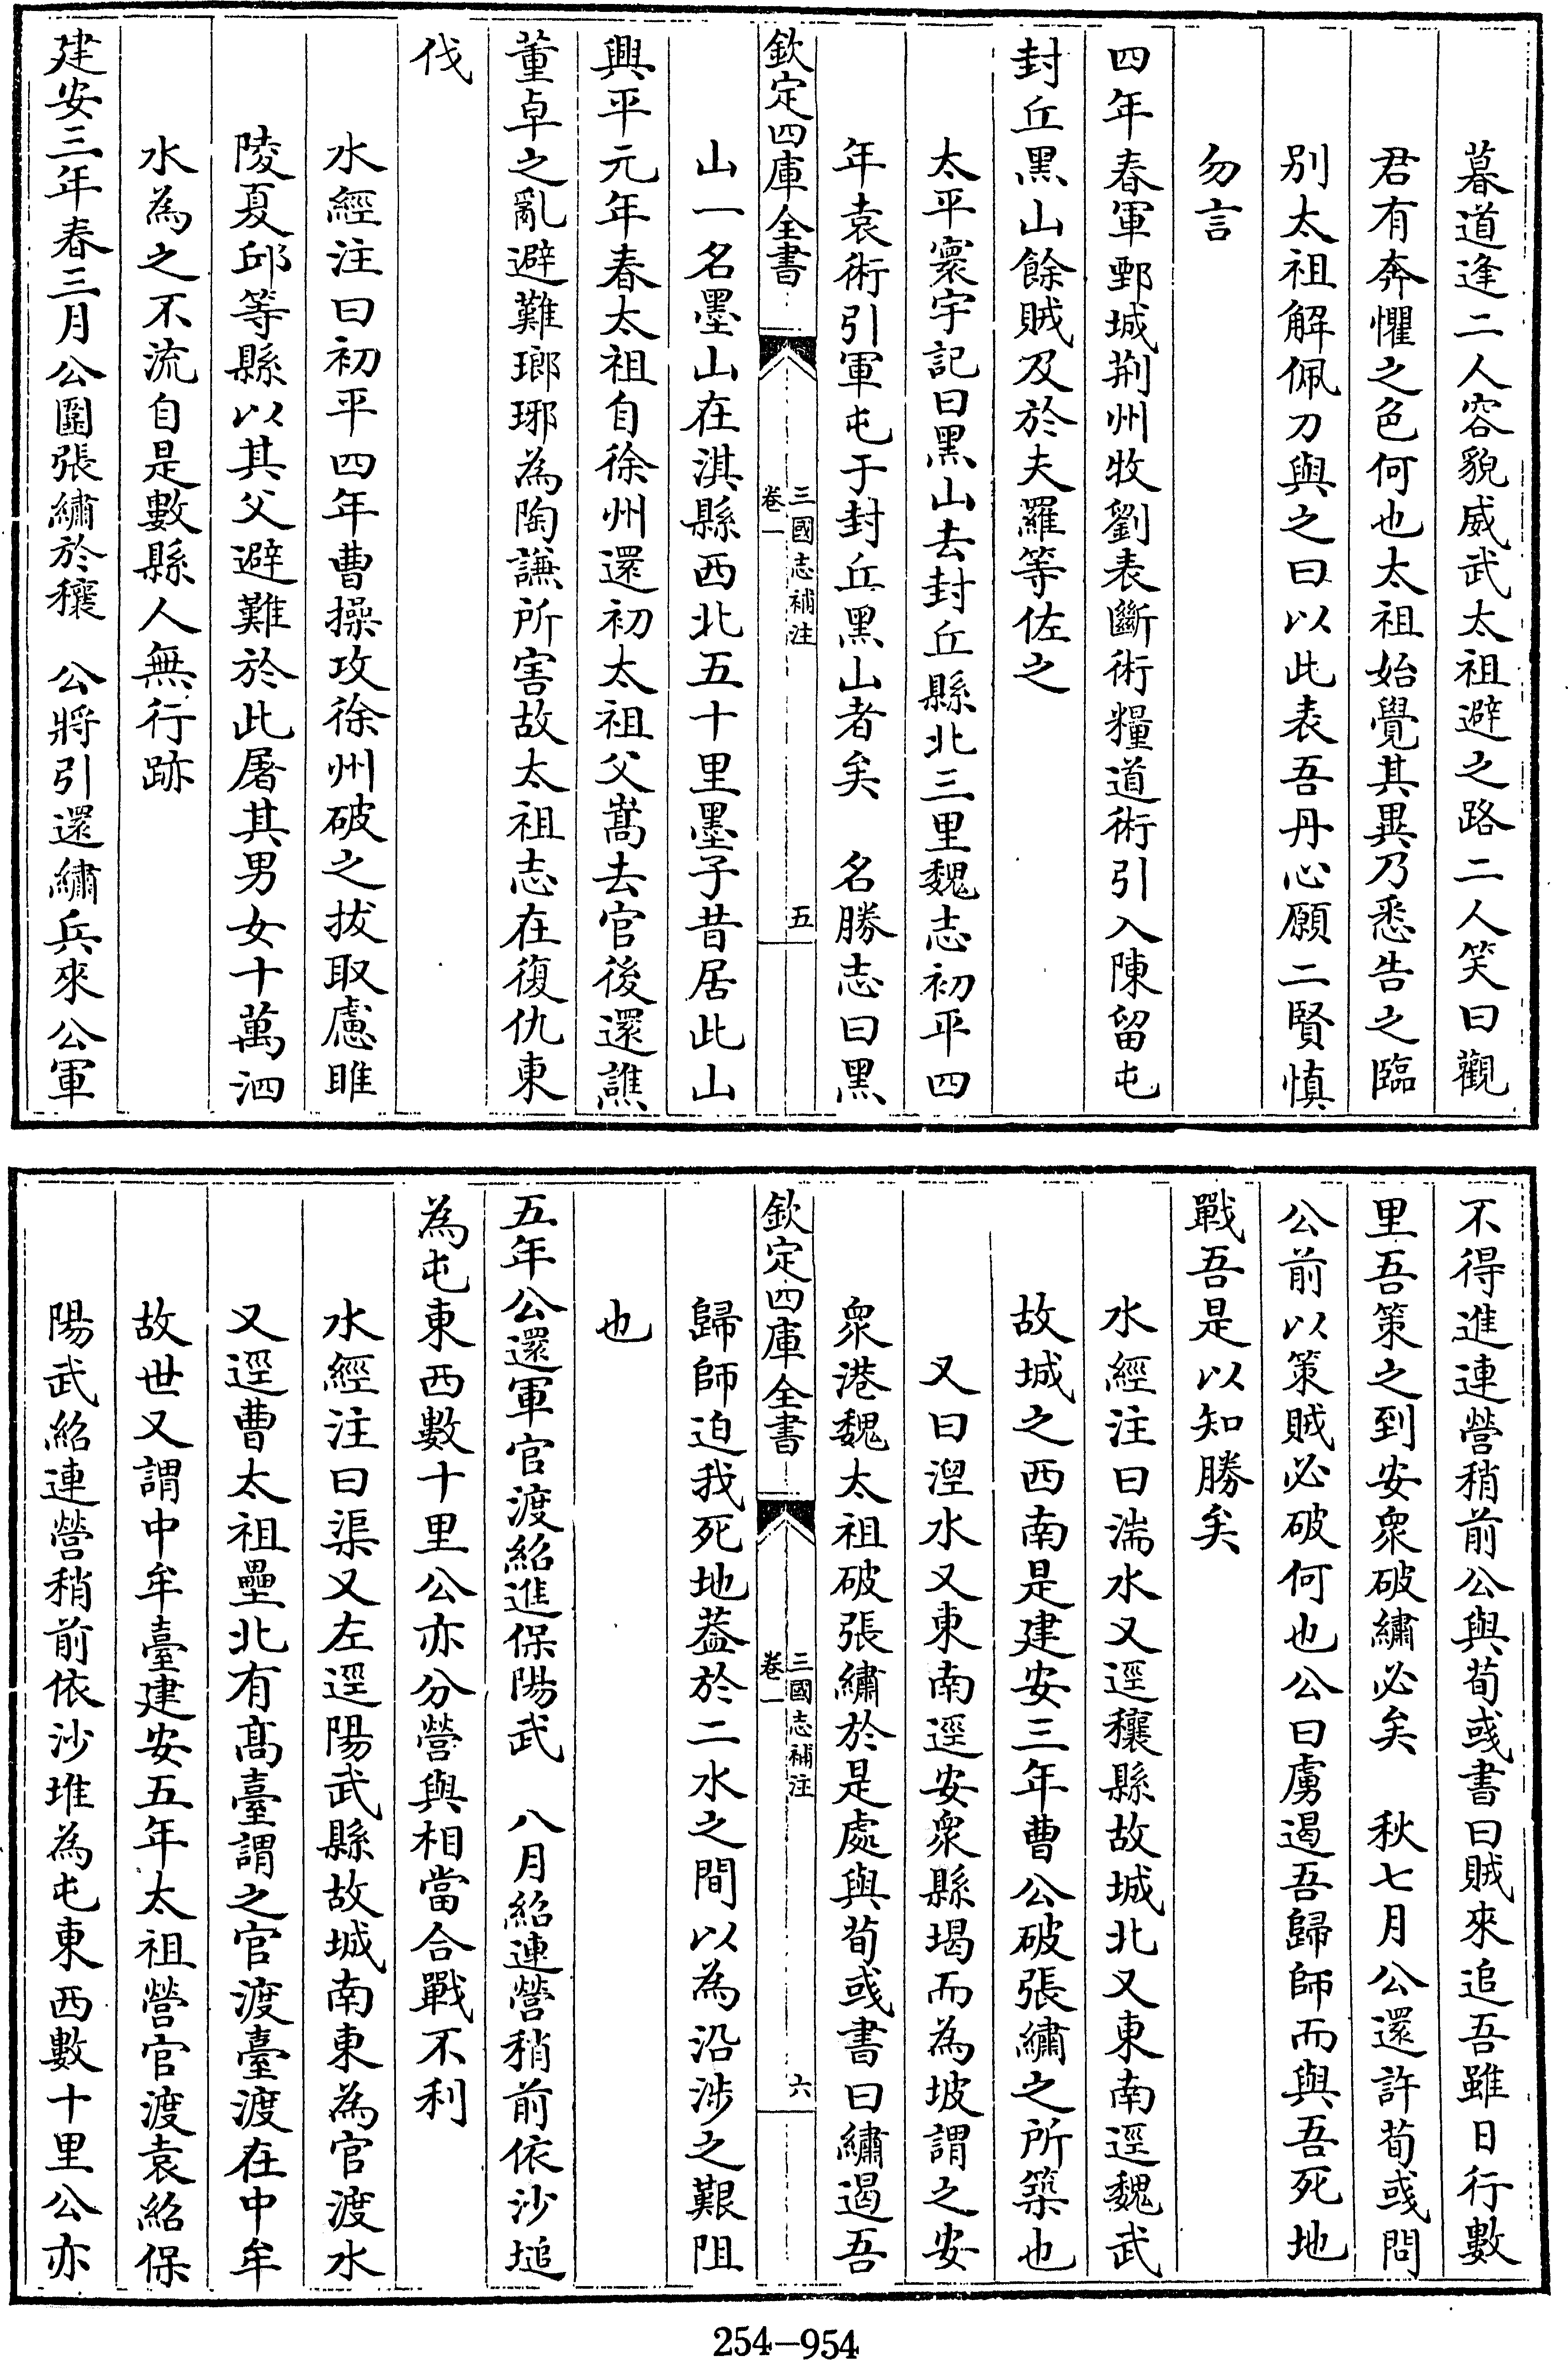 暮道逢二人容貌威武太祖避之路二人笑曰觀
君有奔懼之色何也太祖始覺其異乃悉告之臨
别太祖解佩刀與之曰以此表吾丹心願二賢慎
勿言
四年春軍鄄城荆州牧劉表斷術糧道術引入陳留屯
封丘黑山餘賊及於夫羅等佐之
太平寰宇記曰黑山去封丘縣北三里魏志初平四
年袁術引軍屯于封丘黑山者矣　名勝志曰黑
欽定四庫全書
三國志補注
卷一
五
山一名墨山在淇縣西北五十里墨子昔居此山
興平元年春太祖自徐州還初太祖父嵩去官後還譙
董卓之亂避難瑯琊為陶謙所害故太祖志在復仇東
伐
水經注曰初平四年曹操攻徐州破之拔取慮睢
陵夏邱等縣以其父避難於此屠其男女十萬泗
水為之不流自是數縣人無行跡
建安三年春三月公圍張繡於穰　公將引還繡兵來公軍
不得進連營稍前公與荀彧書曰賊來追吾雖日行數
里吾策之到安衆破繡必矣　秋七月公還許荀彧問
公前以策賊必破何也公曰虜遏吾歸師而與吾死地
戰吾是以知勝矣
水經注曰湍水又逕穰縣故城北又東南逕魏武
故城之西南是建安三年曹公破張繡之所築也
又曰湼水又東南逕安衆縣堨而為坡謂之安
衆港魏太祖破張繡於是處與荀彧書曰繡遏吾
欽定四庫全書
三國志補注
卷一
六
歸師迫我死地葢於二水之間以為沿涉之艱阻
也
五年公還軍官渡紹進保陽武　八月紹連營稍前依沙塠
為屯東西數十里公亦分營與相當合戰不利
水經注曰渠又左逕陽武縣故城南東為官渡水
又逕曹太祖壘北有髙臺謂之官渡臺渡在中牟
故世又謂中牟臺建安五年太祖營官渡袁紹保
陽武紹連營稍前依沙堆為屯東西數十里公亦
254-954